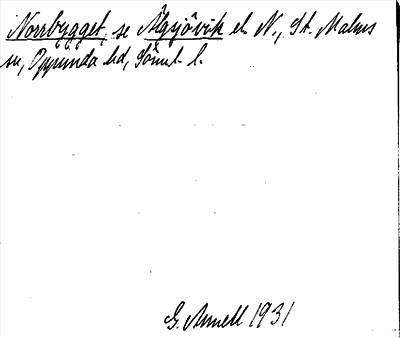 Norrbygget, se Älgsjövik el. N., St. Malms
sn, Oppunda hd, Söml. l.
G. Arnell 1931